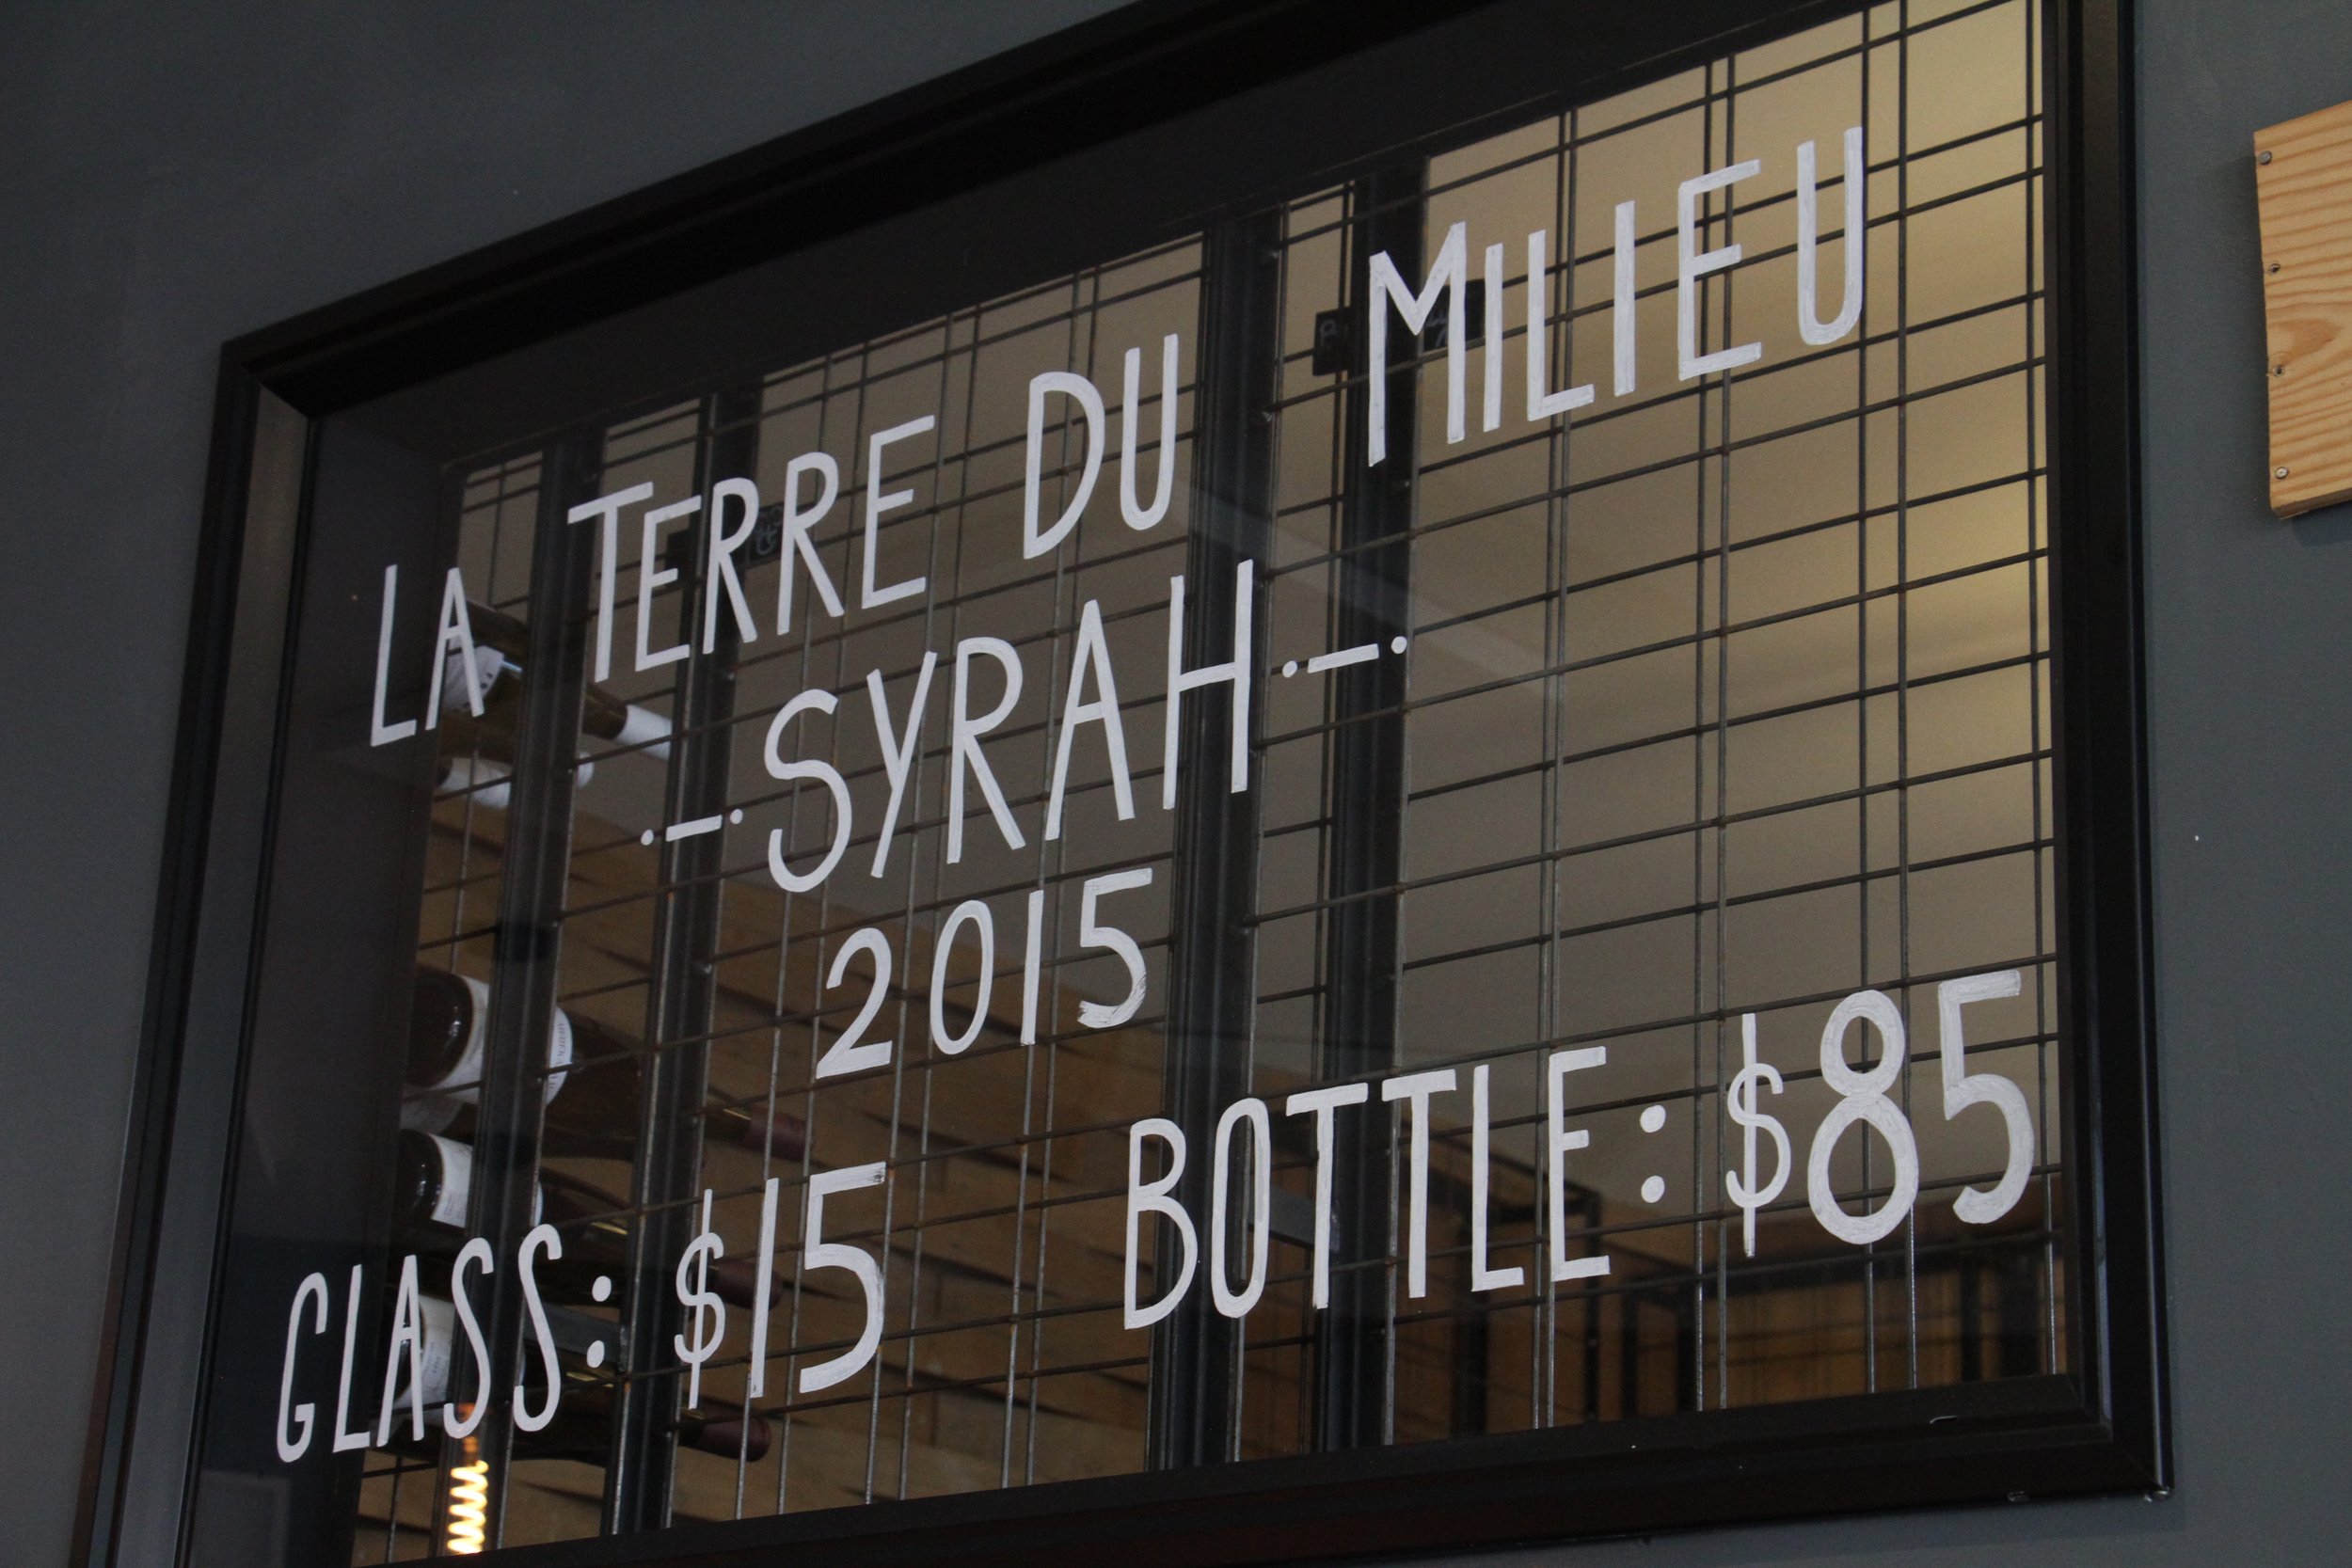 LA TERRE DU MILIEU
·—·SYRAH·—·
2015
GLASS: $15 BOTTLE: $85